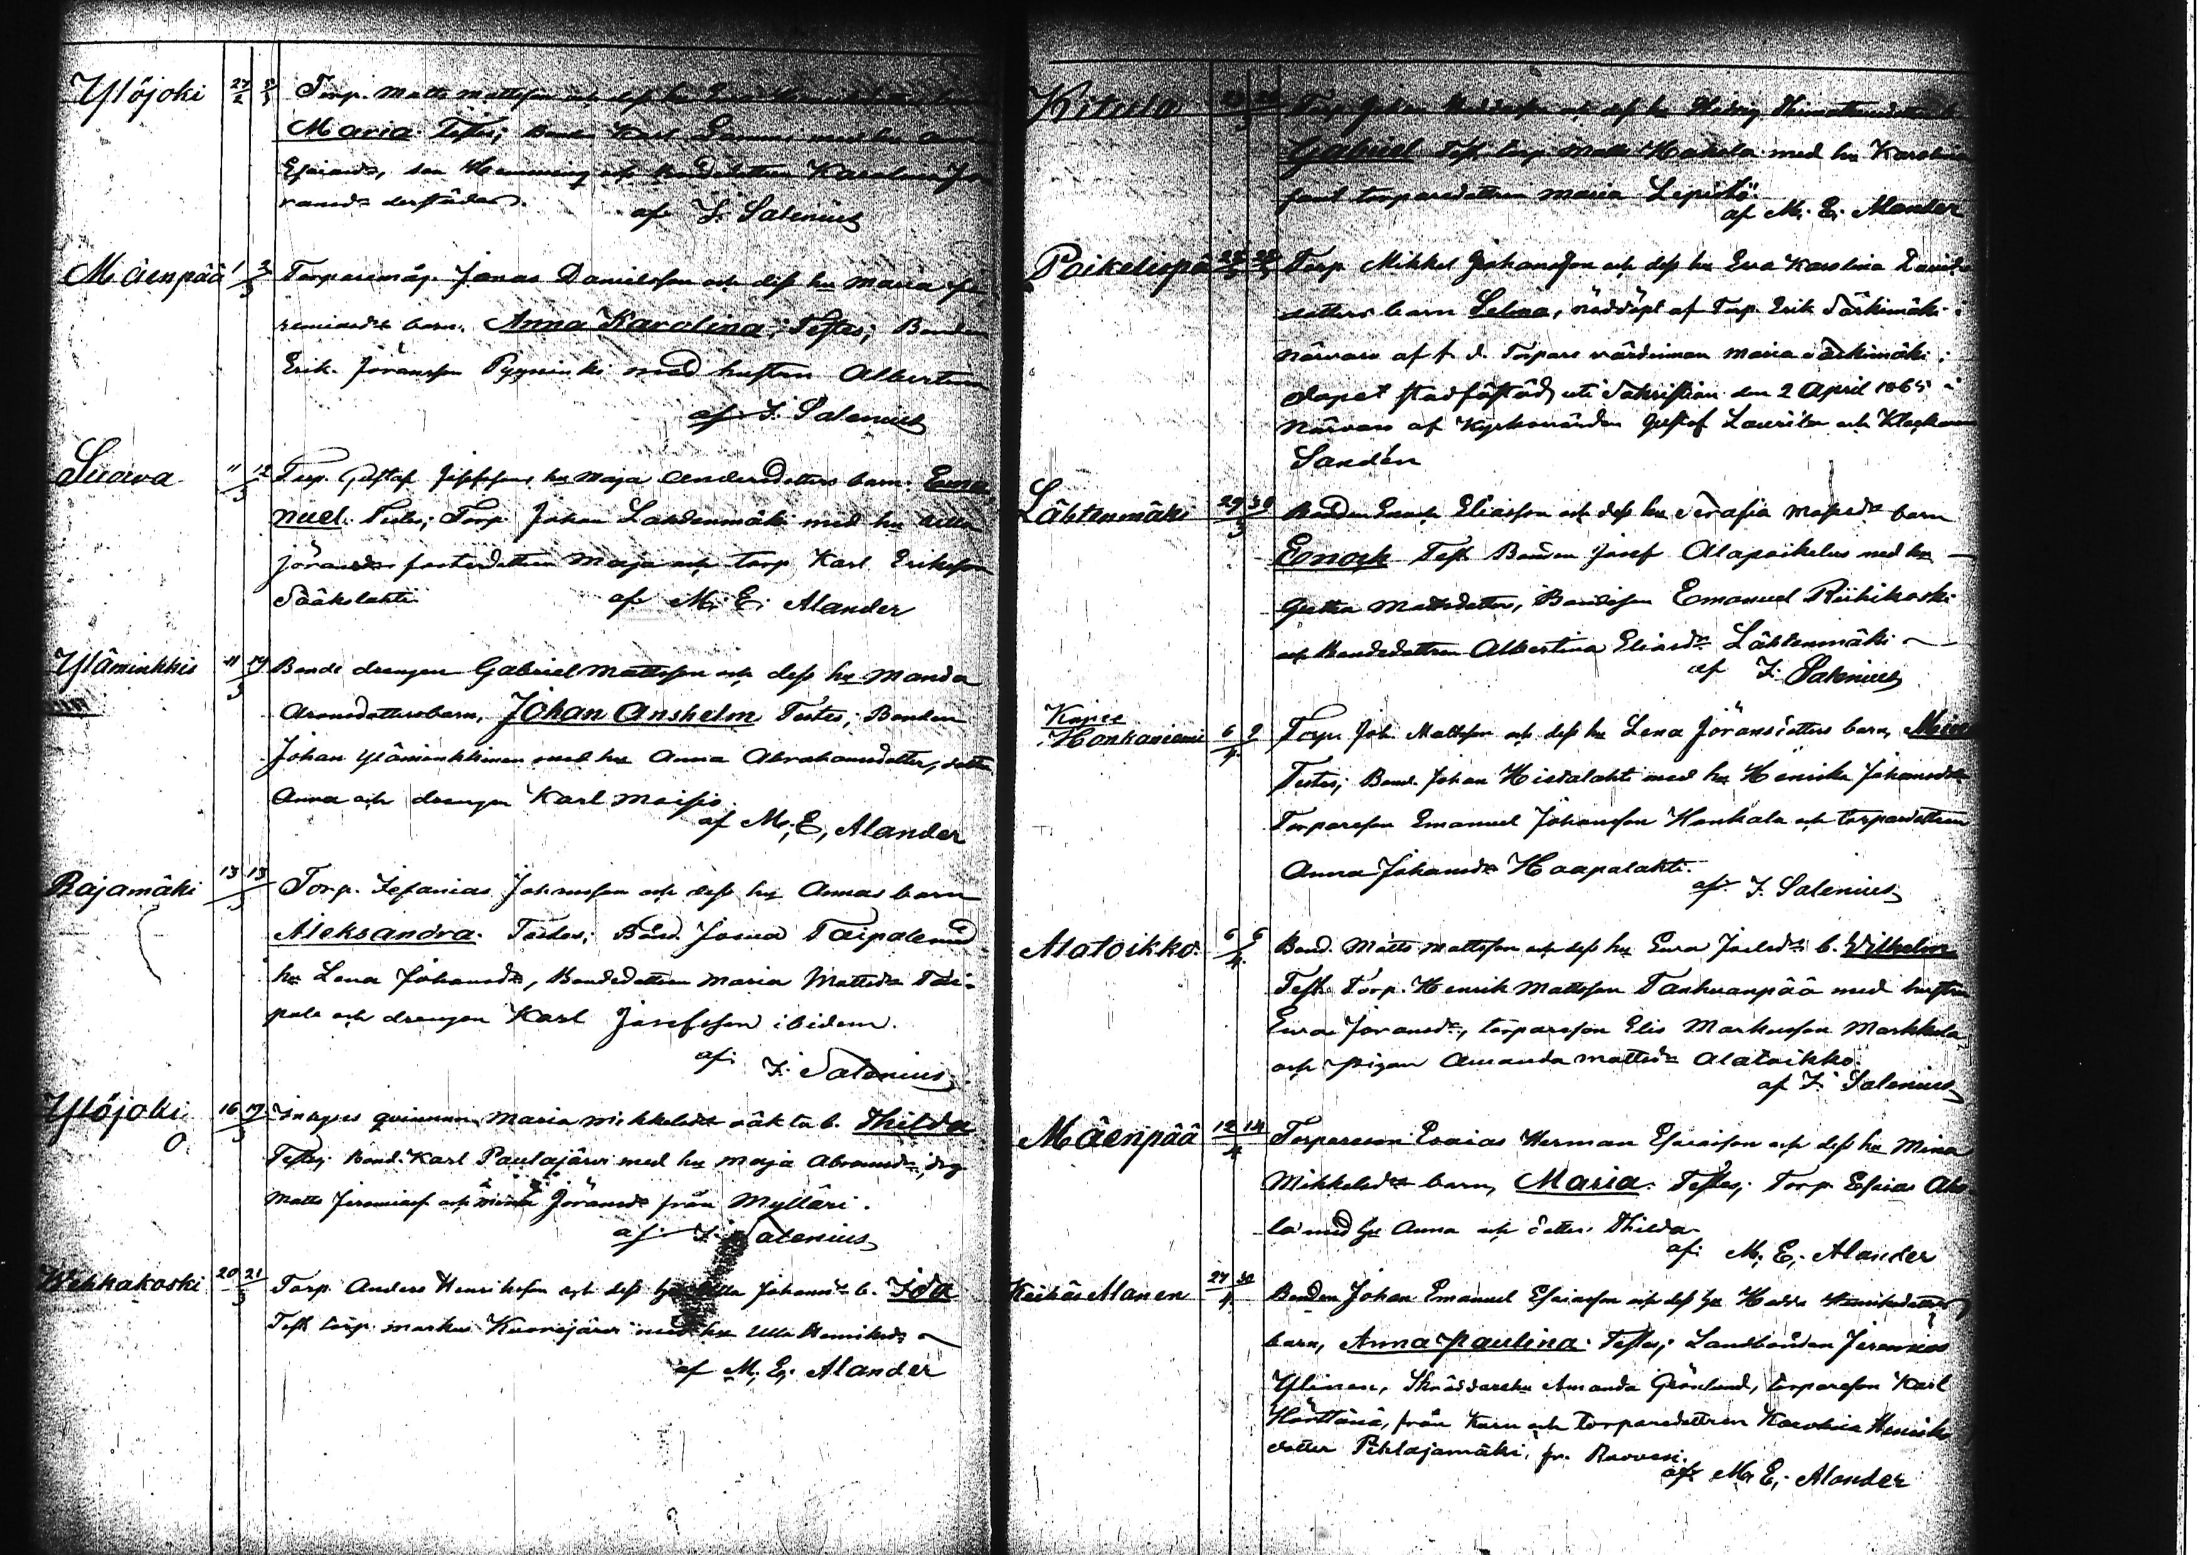 Ylöjoki 27/2 5/3 Torp. Matts Mattsson och dess hu Eva
Maria. Testes; Bonden Karl med hu
Esaiasdr, son Henning och Bondedottren Karolina Jö
ransdr derstädes.
af I. Salenius
Mäenpää 1 3/3 Torparemåg Jonas Danielsson och dess hu Maria Je
remiaedr barn. Anna Karolina; Testes; Bonden
Erik Jöransson Pyyninki med hustrun Albertina
af I. Salenius
Suova 11 12/3 Torp. Gustaf Josefsson, hu Maja Andersdotters barn. Ema
nuel. Testes; Torp. Johan Lahdenmäki med hu Ulla
Jöransdr fosterdottren Maja och torp Karl Eriksson
Sääkslahti
af M. E. Alander
Yläminkkis 11 19/3 Bonde drengen Gabriel Mattsson och dess hu Manda
Aronsdotters barn, Johan Anshelm Testes; Bonden
Johan Yläminkkinen med hu Anna Abrahamsdotter, dotter
Anna och drengen Karl Moisio.
af M. E. Alander
Rajamäki 13 13/3 Torp. Zefanias Johansson och dess hu Annas barn
Aleksandra. Testes; Bond. Josua Taipale med
hu Lena Johansdr, Bondedottren Maria Mattsdr Tai-
pale och drengen Karl Josefsson ibidem.
af I. Salenius
Ylöjoki 16 19/3 Inhyses qvinnan Maria Mikkelsdr oäkta b. Thilda
Testes; Bond. Karl Paulajärvi med hu Maja Abramsdr, drg
Matts Jeremiasf och Mina Jöransdr från Mylläri.
af I. Salenius
Wehkakoski 20 21/3 Torp. Anders Henriksson och dess hu Ulla Johansdr b. Ida
Test. torp. Markus Kuorejärvi med hu Ulla Henriksdr
af M. E. Alander
Kitula Torp. Johan och dess hu Hedvig
Gabriel Test. torp. Matts Hakola med hu Karolina
samt torparedottren Maria Lepistö.
af M. E. Alander
Poikelispä Torp. Mikkel Johansson och dess hu Eva Karolina Davids
dotters barn Selma, nöddöpt af Torp. Erik Särkimäki i
närvaro af f. d. Torpare värdinnan Maria Särkimäki;
dopet stadfästad uti Sakristian den 2 April 1865 i
närvaro af Kyrkovärden Gustaf Laurila och Klockaren
Sandén
Lähtenmäki 29 30/3 Bonden Enok Eliasson och dess hu Serafia Mosesdr barn
Enock Test. Bonden Josef Alapoikelus med hu
Gretha Mattsdotter, Bondeson Emanuel Riihikoski
och Bondedottren Albertina Eliasdr Lähtenmäki
af I. Salenius
Honkaniemi 6 9/4 Torp. Joh. Mattsson och dess hu Lena Jöransdotters barn,
Testes; Bond. Johan Hietalahti med hu Henrika Johansdr
Torpareson Emanuel Johansson Honkala och torparedottren
Anna Johansdr Haapalahti.
af I. Salenius
Alatoikko. 6 6/4 Bond. Matts Mattsson och dess hu Eva Joelsdr b. Wilhelm
Test. Torp. Henrik Mattsson Tanhuanpää med hustru
Eva Jöransdr, torpareson Elis Markusson Markkula
och pigan Amanda Mattsdr Alatoikko.
af I. Salenius
Mäenpää 12 14/4 Torpareson Esaias Herman Esaiasson och dess hu Mina
Mikkelsdr barn, Maria. Testes; Torp. Esaias Aho
la med hu Anna och dotter Thilda
af M. E. Alander
Keihäs Alanen 27 30/4 Bonden Johan Emanuel Esaiasson och dess hu Hedda Henriksdotters
barn, Anna Paulina. Testes; Landbonden Jeremias
Ylinen, Skräddarehu Amanda Grönlund, torpareson Karl
Hörttänä, från Karu och torparedottren Karolina Henriks
dotter Pihlajamäki, fr. Ruovesi.
af M. E. Alander